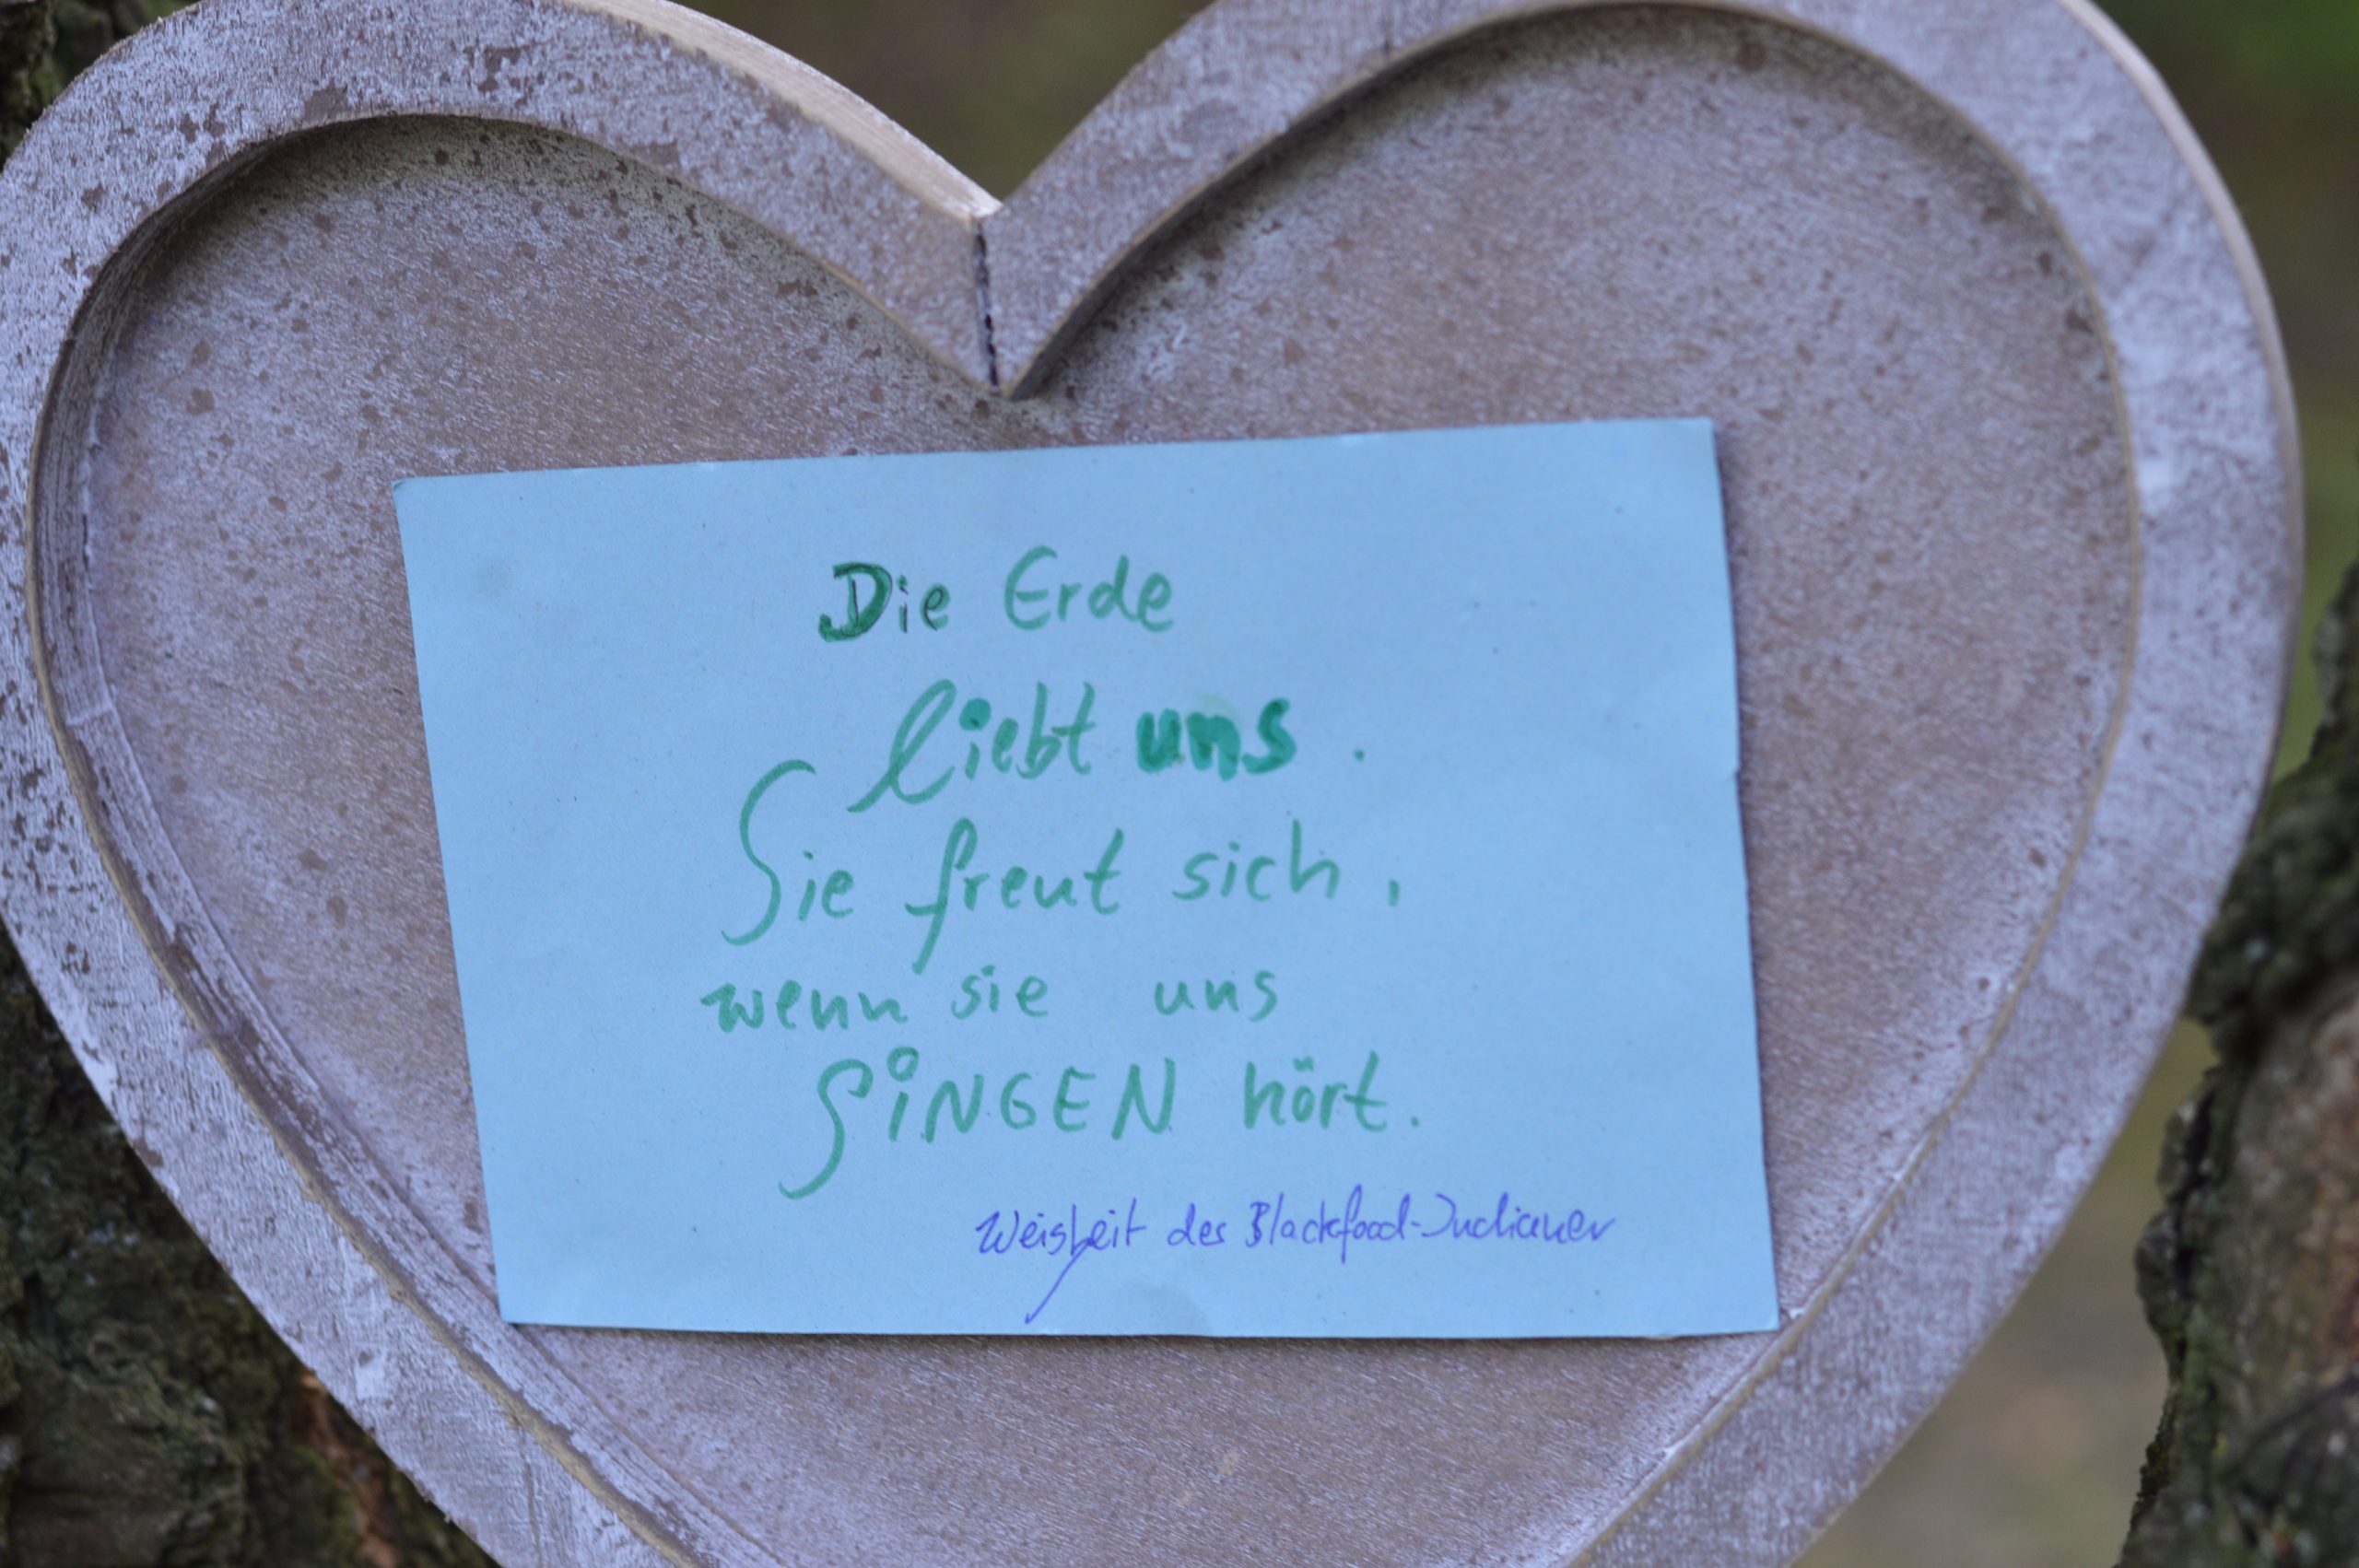 Die Erde
liebt uns.
Sie freut sich,
wenn sie uns
SiNGEN hört.
Weisheit der Blackfood-Indianer